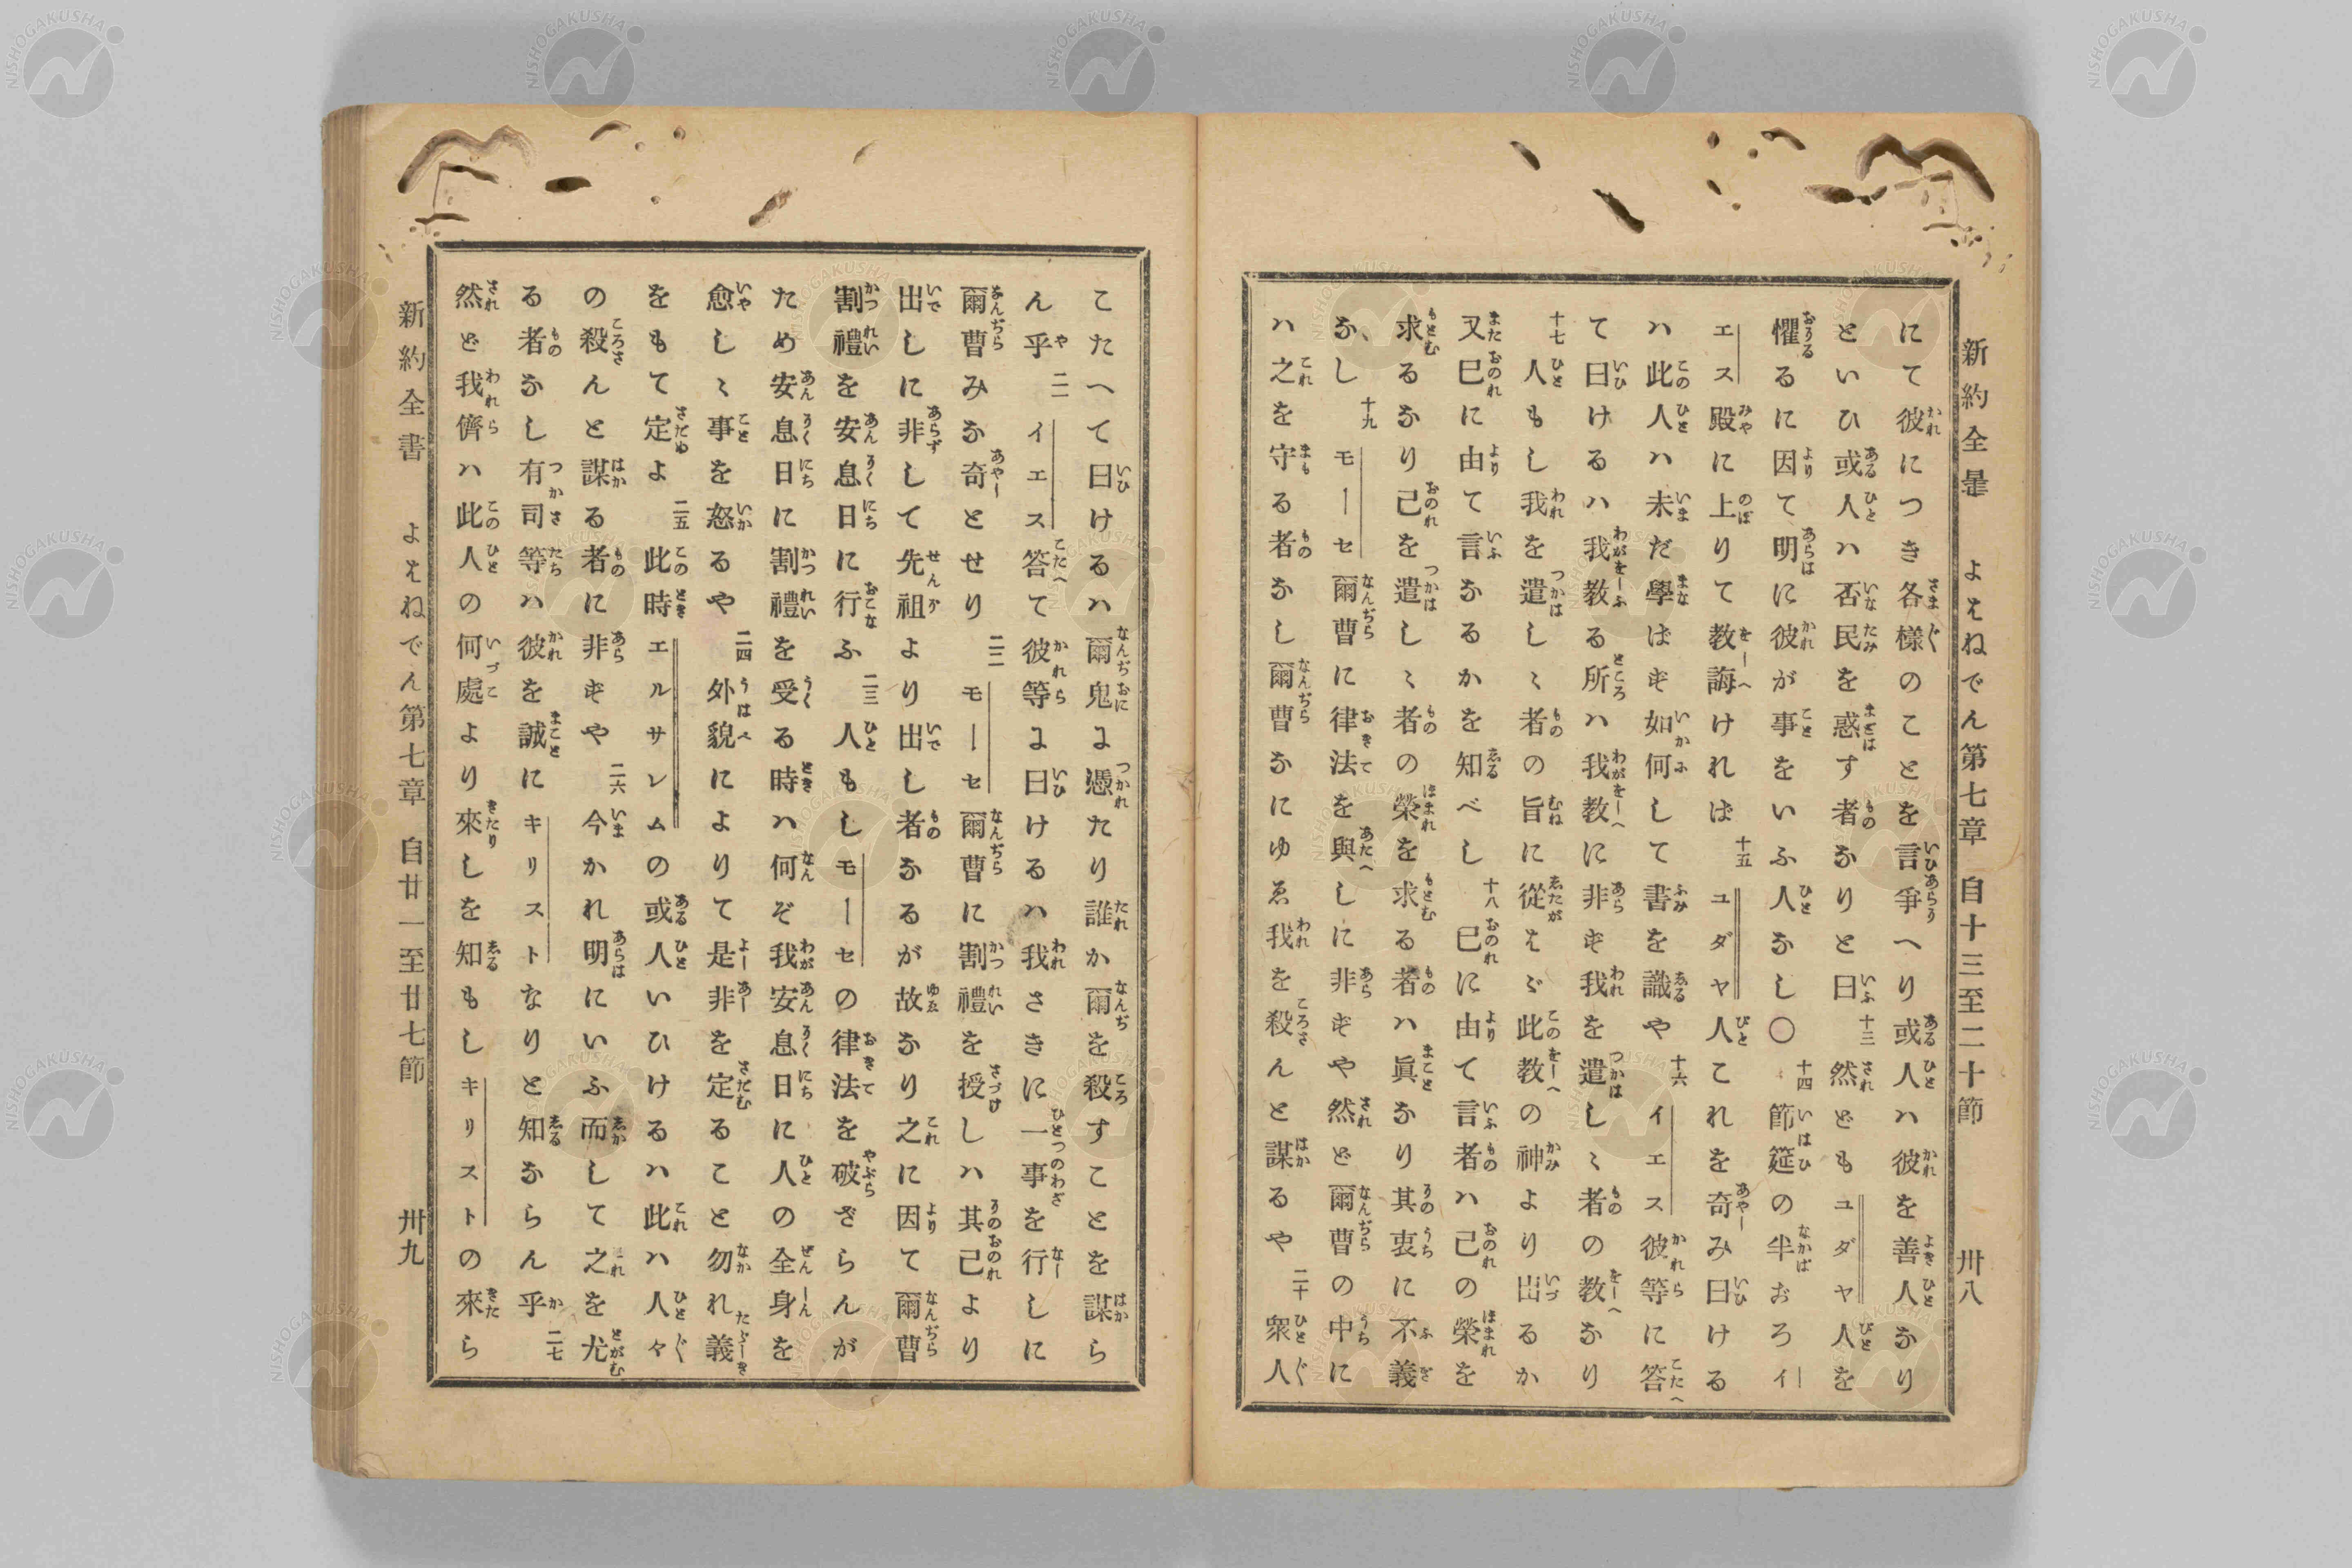 新約全書　よはねでん第七章　自十三至二十節　卅八
にて彼につき各様のことを言爭へり或人ハ彼を善人なり
といひ或人ハ否民を惑す者なりと曰十三然ども ユダヤ人を
懼るに因て明に彼が事をいふ人なし〇十四節筵の半おろイ
エス殿に上りて教誨けれは十五ユダヤ人これを奇み曰ける
ハ此人ハ未だ學ばずして如何して書を識や十六イエス彼等に答
て曰けるハ我教る所ハ我教に非ず我を遣しゝ者の教なり
十七人もし我を遣しゝ者の旨に從はゞ此教の神より出るか
又己に由て言なるかを知べし十八己に由て言者ハ己の榮を
求るなり己を遣しゝ者の榮を求る者ハ眞なり其衷に不義
なし十九モーセ爾曹に律法を與へしに非ずや然ど爾曹の中に
ハ之を守る者なし爾曹なにゆゑ我を殺んと謀るや二十衆人
こたへて曰けるハ爾鬼に憑たり誰か爾を殺すことを謀ら
ん乎二一イエス答て彼等に曰けるハ我さきに一事を行しに
爾曹みな奇とせり二二モーセ爾曹に割禮を授しハ其己より
出しに非して先祖より出し者なるが故なり之に因て爾曹
割禮を安息日に行ふ二三人もしモーセの律法を破ざらんが
ため安息日に割禮を受る時ハ何ぞ我安息日に人の全身を
愈しゝ事を怒るや二四外貌によりて是非を定ること勿れ義
をもて定よ二五此時エルサレムの或人いひけるハ此ハ人々
の殺んと謀る者に非ずや二六今かれ明にいふ而して之を尤
る者なし有司等ハ彼を誠にキリストなりと知ならん乎二七
然ど我儕ハ此人の何處より來しを知もしキリストの來ら
新約全書　よはねでん第七章　自廿一至廿七節　卅九
NISHOGAKUSHA